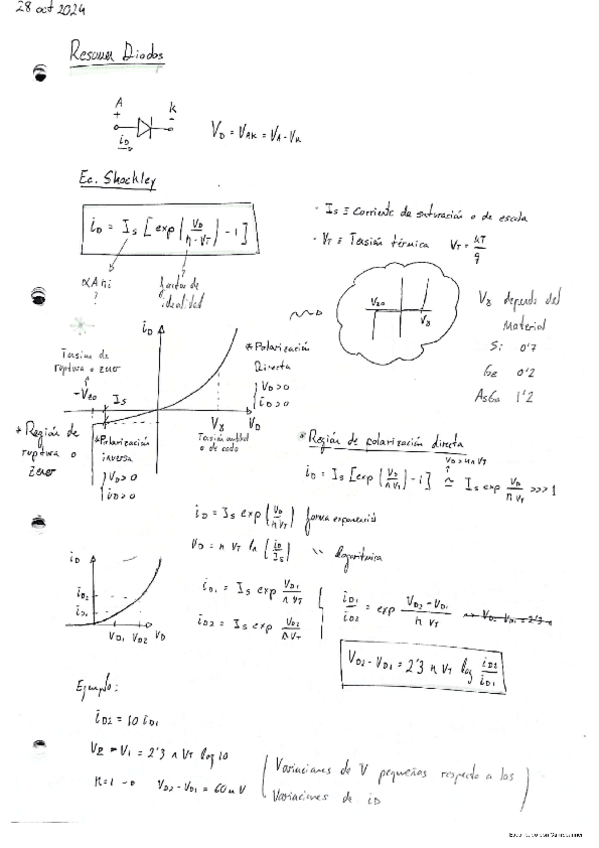 28 oct 2024
Resumen Diodos
A
K
+
-
iD
VD = VAK = VA - VK
Ec. Shockley
iD = IS [exp(VD / n·VT) - 1]
· IS ≡ Corriente de saturación o de escala
· VT ≡ Tensión térmica VT = kT/q
αA ni
?
factor de
idealidad
Vγ depende del
Material
Si 0'7
Ge 0'2
AsGa 1'2
VZ0
Vγ
iD
Tensión de
ruptura o zener
-VZ0
IS
* Polarización
Directa
VD>0
iD>0
Vγ
VD
Tensión umbral
o de codo
* Región de
ruptura o
zener
* Polarización
inversa
VD>0
iD>0
* Región de polarización directa
VD>nVT
iD = IS [exp(VD / nVT) - 1] ≃ IS exp VD / nVT >>> 1
iD = IS exp(VD / nVT) forma exponencial
VD = n VT ln(iD / IS) " logarítmica
iD
iD2
iD1
VD1 VD2 VD
iD1 = IS exp VD1 / nVT
iD2 = IS exp VD2 / nVT
iD1 / iD2 = exp VD2 - VD1 / n VT
VD2 - VD1 = 2'3 n VT log iD2 / iD1
Ejemplo:
iD2 = 10 iD1
V2 - V1 = 2'3 n VT log 10
n=1 → VD2 - VD1 = 60 mV
(Variaciones de V pequeñas respecto a las
Variaciones de iD)